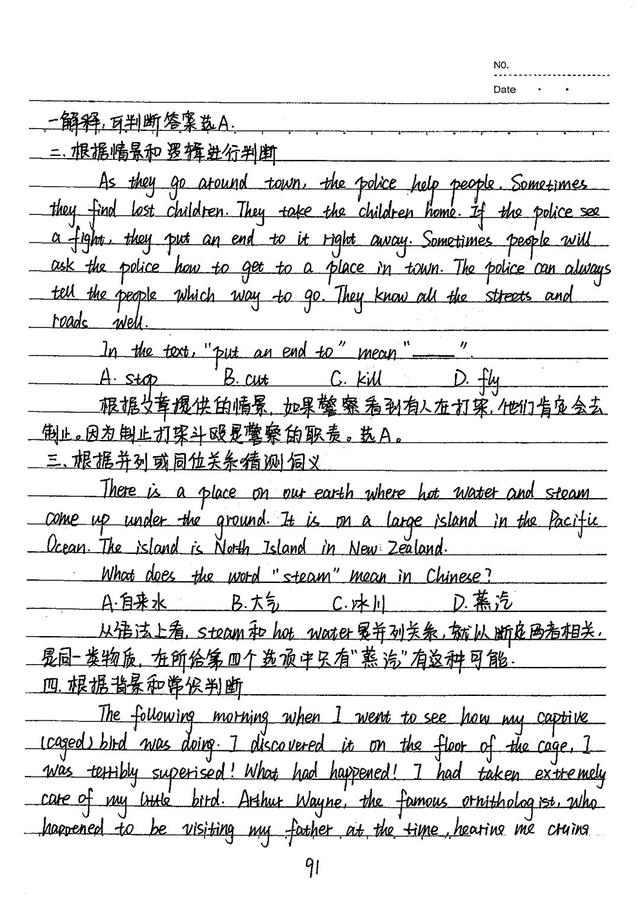 No.
Date
一解释,可判断答案选A.
二、根据情景和逻辑进行判断
As they go around town, the police help people. Sometimes
they find lost children. They take the children home. If the police see
a fight, they put an end to it right away. Sometimes people will
ask the police how to get to a place in town. The police can always
tell the people which way to go. They know all the streets and
roads well.
In the text, "put an end to" mean "____".
A. stop B. cut C. kill D. fly
根据文章提供的情景,如果警察看到有人在打架,他们肯定会去
制止。因为制止打架斗殴是警察的职责。选A。
三、根据并列或同位关系猜测词义
There is a place on our earth where hot water and steam
come up under the ground. It is on a large island in the Pacific
Ocean. The island is North Island in New Zealand.
What does the word "steam" mean in Chinese?
A.自来水 B.大气 C.冰川 D.蒸汽
从语法上看,steam和hot water是并列关系,就以断定两者相关,
是同一类物质,在所给第四个选项中只有"蒸汽"有这种可能.
四、根据背景和常识判断
The following morning when I went to see how my captive
(caged) bird was doing. I discovered it on the floor of the cage, I
was terribly superised! What had happened! I had taken extremely
care of my little bird. Arthur Wayne, the famous ornithologist, who
happened to be visiting my father at the time, hearing me crying
91